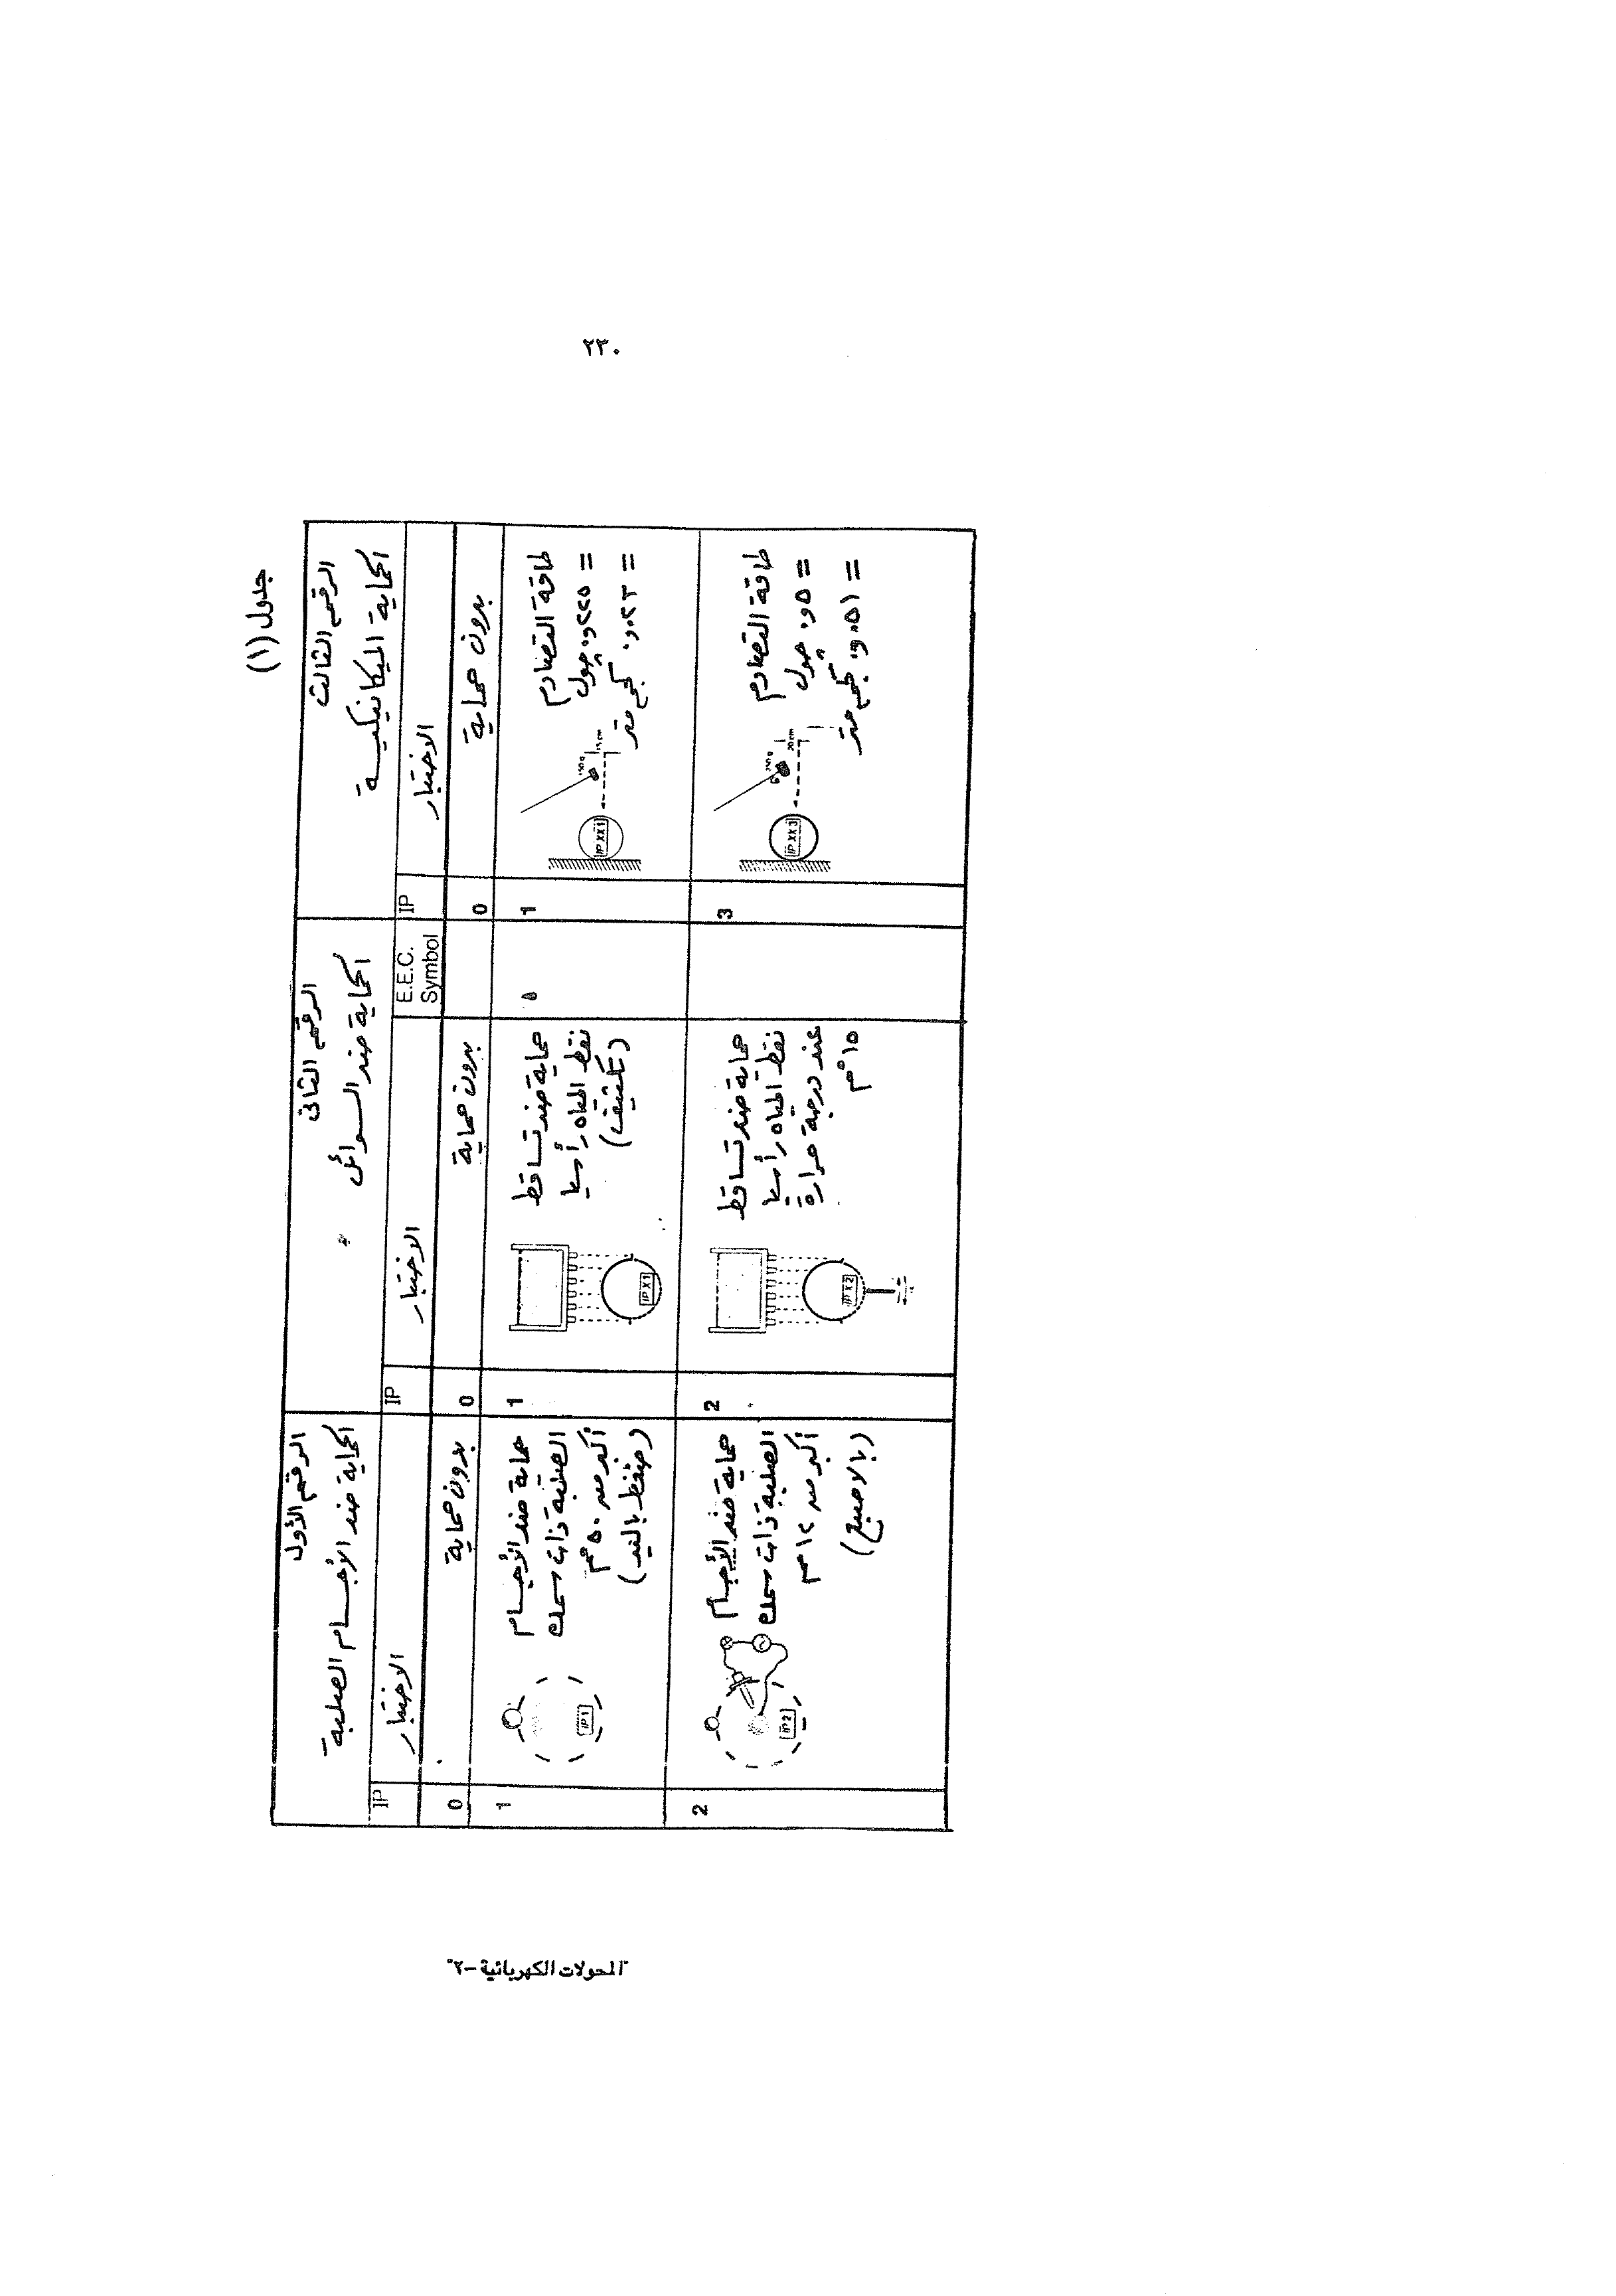 ٢٣٠
جدول (١)
الرقم الأول
الحماية ضد الأجسام الصلبة
الرقم الثانى
الحماية ضد السوائل
الرقم الثالث
الحماية الميكانيكية
IP
الاختبار
IP
الاختبار
E.E.C.
Symbol
IP
الاختبار
0
بدون حماية
0
بدون حماية
0
بدون حماية
1
IP 1
حماية ضد الأجسام
الصلبة ذات سمك
أكبر من ٥٠مم
(ضغط باليد)
1
IP X 1
حماية ضد تساقط
نقط المياه رأسيا
(تكثيف)
1
IP XX 1
150 g
15 cm
طاقة التصادم
= ٢٢٥و٠ جول
= ٠٢٣و٠ كجم متر
2
IP 2
حماية ضد الأجسام
الصلبة ذات سمك
أكبر من ١٢مم
(بالاصبع)
2
IP X 2
حماية ضد تساقط
نقط المياه رأسيا
عند درجة حرارة
١٥°م
3
IP XX 3
250 g
20 cm
طاقة التصادم
= ٥و٠ جول
= ٠٥١و٠ كجم متر
"المحولات الكهربائية -٢"